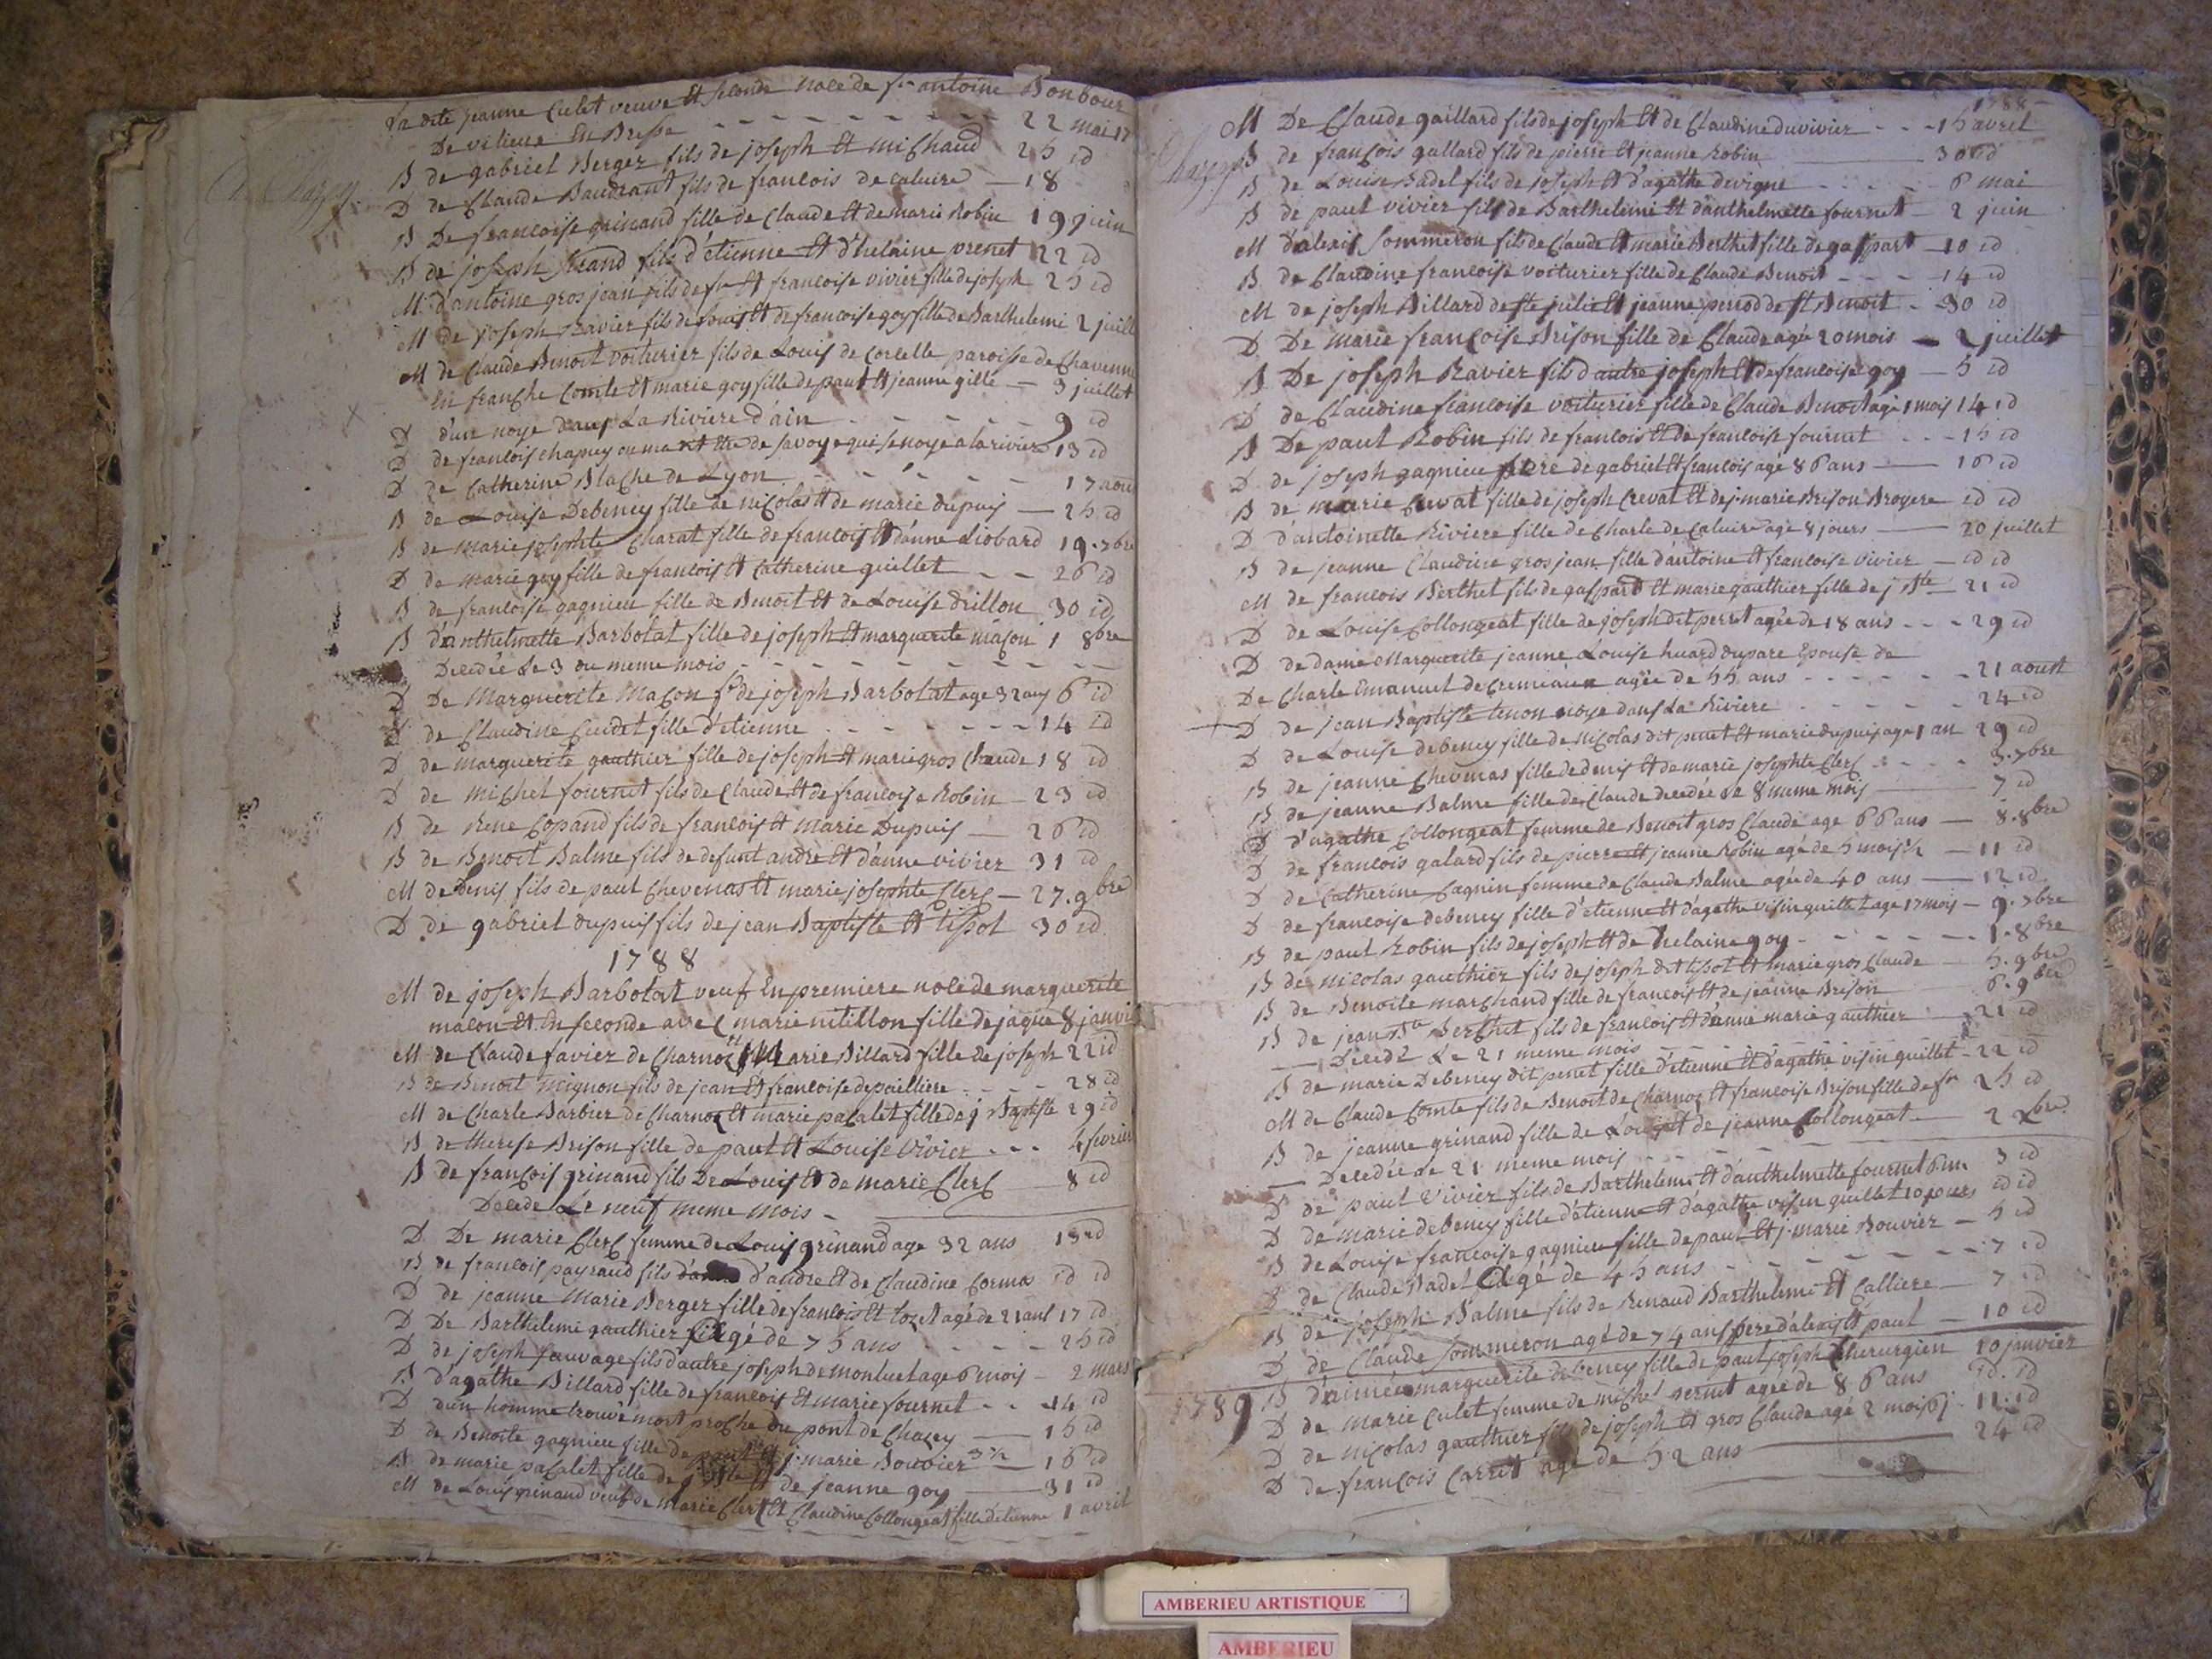 La dite jeanne Culet veuve Et seconde noce de fr antoine Bonbour
De vilieux En Bresse - - - - - - - 22 mai 17
B de gabriel Berger fils de joseph Et michaud 25 id
D de Claude Baudrant fils de francois de caluire — 18
B De francoise grinand fille de Claude Et de marie Robin 19 juin
B de joseph fils d'étienne Et d'helaine 22 id
M d'antoine gros jean fils de fu Et francoise vivier fille de joseph 25 id
M de joseph Ravier fils de Louis Et de francoise goy fille de Barthelemi 2 juill
M de Claude Benoit voiturier fils de Louis de Corcelle paroisse de Chavenne
En franche Comte Et marie goy fille de paul Et jeanne gille — 3 juillet
D d'un noye dans La Riviere d'ain - - - - 9 id
D de francois chapuy de savoye qui se noye a la riviere 13 id
D de Catherine Blache de Lyon - - - - - 17 aou
B de Louise Debeney fille de nicolas Et de marie dupuis — 25 id
B de marie josephte Charat fille de francois Et d'anne Liobard 19. 7bre
D de marie goy fille de francois Et Catherine guillet - - 26 id
B de francoise gagnieu fille de Benoit Et de Louise drillon 30 id
B d'anthelmette Barbolat fille de joseph Et marguerite maçon 1 8bre
Decedée Le 3 du meme mois - - - - - - - - -
D De Marguerite Maçon fe de joseph Barbolat age 32 ans 6 id
D de Claudine fille d'etienne - - - - - - 14 id
D de marguerite gauthier fille de joseph Et marie gros Claude 18 id
D de michel fournet fils de Claude Et de francoise Robin — 23 id
B de Rene Copand fils de francois Et marie Dupuis — 26 id
B de Benoit Balme fils de defunt andre Et d'anne vivier 31 id
M de Denis fils de paul Chevenas Et marie josephte Clerc — 27. 9bre
D de gabriel dupuis fils de jean Baptiste Et tissot 30 id
1788
M de joseph Barbolat veuf En premiere noce de marguerite
macon Et En seconde avec marie nitillon fille de jaque 8 janvi
M de Claude favier de Charnoz Et Marie Billard fille de joseph 22 id
B de Benoit mignon fils de jean Et francoise depailliere - - - 28 id
M de Charle Barbier de Charnoz Et marie pacalet fille de j Baptiste 29 id
B de therese Brison fille de paul Et Louise Vivier - - - 4 fevrier
B de francois grinand fils De Louis Et de marie Clerc — 8 id
Decede Le neuf meme mois -
D De marie Clerc femme de Louis grinand age 32 ans 13 id
B de francois payraud fils d'andre Et de Claudine Cormos id id
D de jeanne Marie Berger fille de francois Et agé de 21 ans 17 id
D De Barthelemi gauthier agé de 75 ans - - - - 25 id
D de joseph sauvage fils d'autre joseph de monluel age 6 mois - 2 mars
B d'agathe Billard fille de francois Et marie fournet - - - 14 id
D d'un homme trouvé mort proche du pont de Chazey — 15 id
D de Benoite gagnieu fille de paul Et j: marie Bouvier — 16 id
B de marie pacalet fille de j Bte Et de jeanne goy — 31 id
M de Louis grinand veuf de marie Clerc Et Claudine Collongeat fille d'etienne 1 avril
1788
M De Claude gaillard fils de joseph Et de Claudine duvivier - - - 15 avril
B de françois gallard fils de pierre Et jeanne Robin — 30 id
B de Louise Badel fils de joseph Et d'agathe devigne - - - - 6 mai
B de paul vivier fils de Barthelemi Et d'anthelmette fournet — 2 juin
M d'alexis Sommeron fils de Claude Et marie Berthet fille de gaspart — 10 id
B de Claudine francoise voiturier fille de Claude Benoit - - - 14 id
M de joseph Billard de ste julie Et jeanne perrod de st Benoit - 30 id
D De marie françoise Brison fille de Claude agée 20 mois — 2 juillet
B De joseph Ravier fils d'autre joseph Et de francoise goy — 5 id
D de Claudine francoise voiturier fille de Claude Benoit agé 1 mois 14 id
B De paul Robin fils de francois Et de francoise fournet - - - 15 id
D de joseph gagnieu pere de gabriel Et francois agé 86 ans — 16 id
B de marie Crevat fille de joseph Crevat Et de j: marie Brison Broyere id id
D d'antoinette Riviere fille de Charle de Caluire age 8 jours — 20 juillet
B de jeanne Claudine gros jean fille d'antoine Et francoise vivier — id id
M de francois Berthet fils de gaspard Et marie gauthier fille de j Bte — 21 id
D de Louise Collongeat fille de joseph dit perret agée de 18 ans - - - 29 id
D de dame Marguerite jeanne Louise huard duparc Epouse de
De Charle Emanuel de Cremeaux agée de 55 ans - - - - - 21 aoust
D de jean Baptiste noye dans La Riviere - - - - - 24 id
D de Louise debeney fille de nicolas dit penet Et marie dupuis age 1 an 29 id
B de jeanne Chevenas fille de denis Et de marie josephte Clerc - - - - 3. 7bre
B de jeanne Balme fille de Claude decedée Le 8 meme mois — 7 id
D d'agathe Collongeat femme de Benoit gros Claude age 66 ans — 8. 8bre
D de francois galard fils de pierre Et jeanne Robin age de 5 mois ½ — 11 id
D de Catherine Cagnin femme de Claude Balme agée de 40 ans — 12 id
D de francoise debeney fille d'etienne Et d'agathe visin guillet age 17 mois — 9. 7bre
B de paul Robin fils de joseph Et de helaine goy - - - - - 1. 8bre
B de nicolas gauthier fils de joseph dit tissot Et marie gros Claude — 5. 9bre
B de Benoite marchand fille de francois Et de jeanne Brison 6. 9bre
B de jean Bte Berthet fils de francois Et d'anne marie gauthier — 21 id
— Decedé Le 21 meme mois - - - -
B de marie Debeney dit penet fille d'etienne Et d'agathe visin guillet — 22 id
M de Claude Comte fils de Benoit de Charnoz Et francoise Brison fille de fr 25 id
B de jeanne grinand fille de Louis Et de jeanne Collongeat — 2 Xbre
— Decedée Le 21 meme mois - - - -
D de paul Vivier fils de Barthelemi Et d'anthelmette fournet 6 m. 3 id
D de marie debeney fille d'etienne Et d'agathe visin guillet 10 jours id id
B de Louise francoise gagnieu fille de paul Et j: marie Bouvier — 5 id
D de Claude Badel agé de 45 ans - - - - - - 7 id
B de joseph Balme fils de Renaud Barthelemi Et Calliere 7 id
D de Claude Sommeron agé de 74 ans pere d'alexis Et paul — 10 id
1789 B d'aimée marguerite debeney fille de paul joseph Cherurgien 10 janvier
D de Marie Culet femme de michel vernet agée de 86 ans id. id
D de nicolas gauthier fils de joseph Et gros Claude age 2 mois 6 j. 11. id
D de francois Carret agé de 52 ans — 24 id
AMBERIEU ARTISTIQUE
AMBERIEU